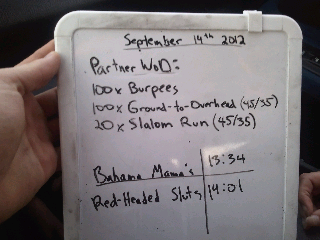 September 14th 2012
Partner WoD:
100x Burpees
100x Ground-to-Overhead (45/35)
20x Slalom Run (45/35)
Bahama Mama's 13:34
Red-Headed Sluts 14:01